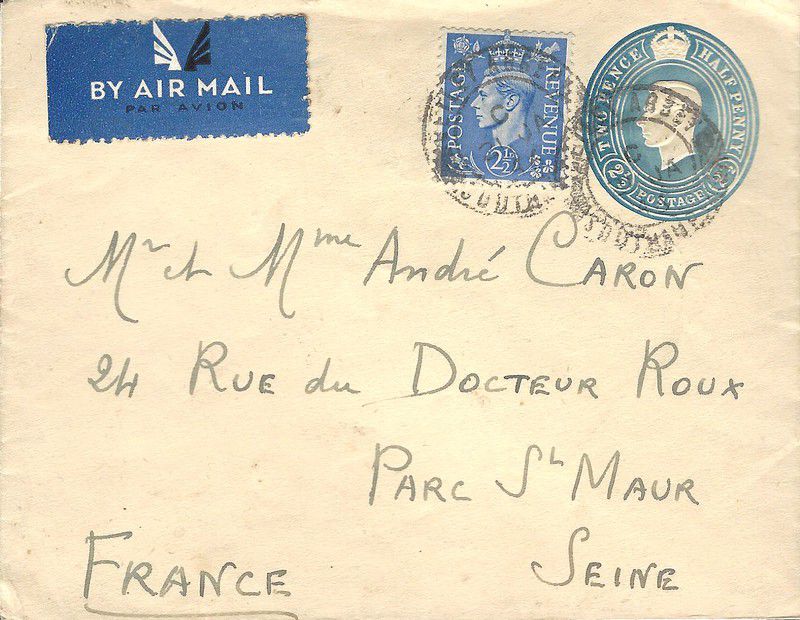 BY AIR MAIL
PAR AVION
POSTAGE REVENUE
2½D
TWO PENCE HALF PENNY
2½ POSTAGE 2½
Mr et Mme André CARON
24 RUE du DOCTEUR ROUX
PARC St MAUR
SEINE
FRANCE